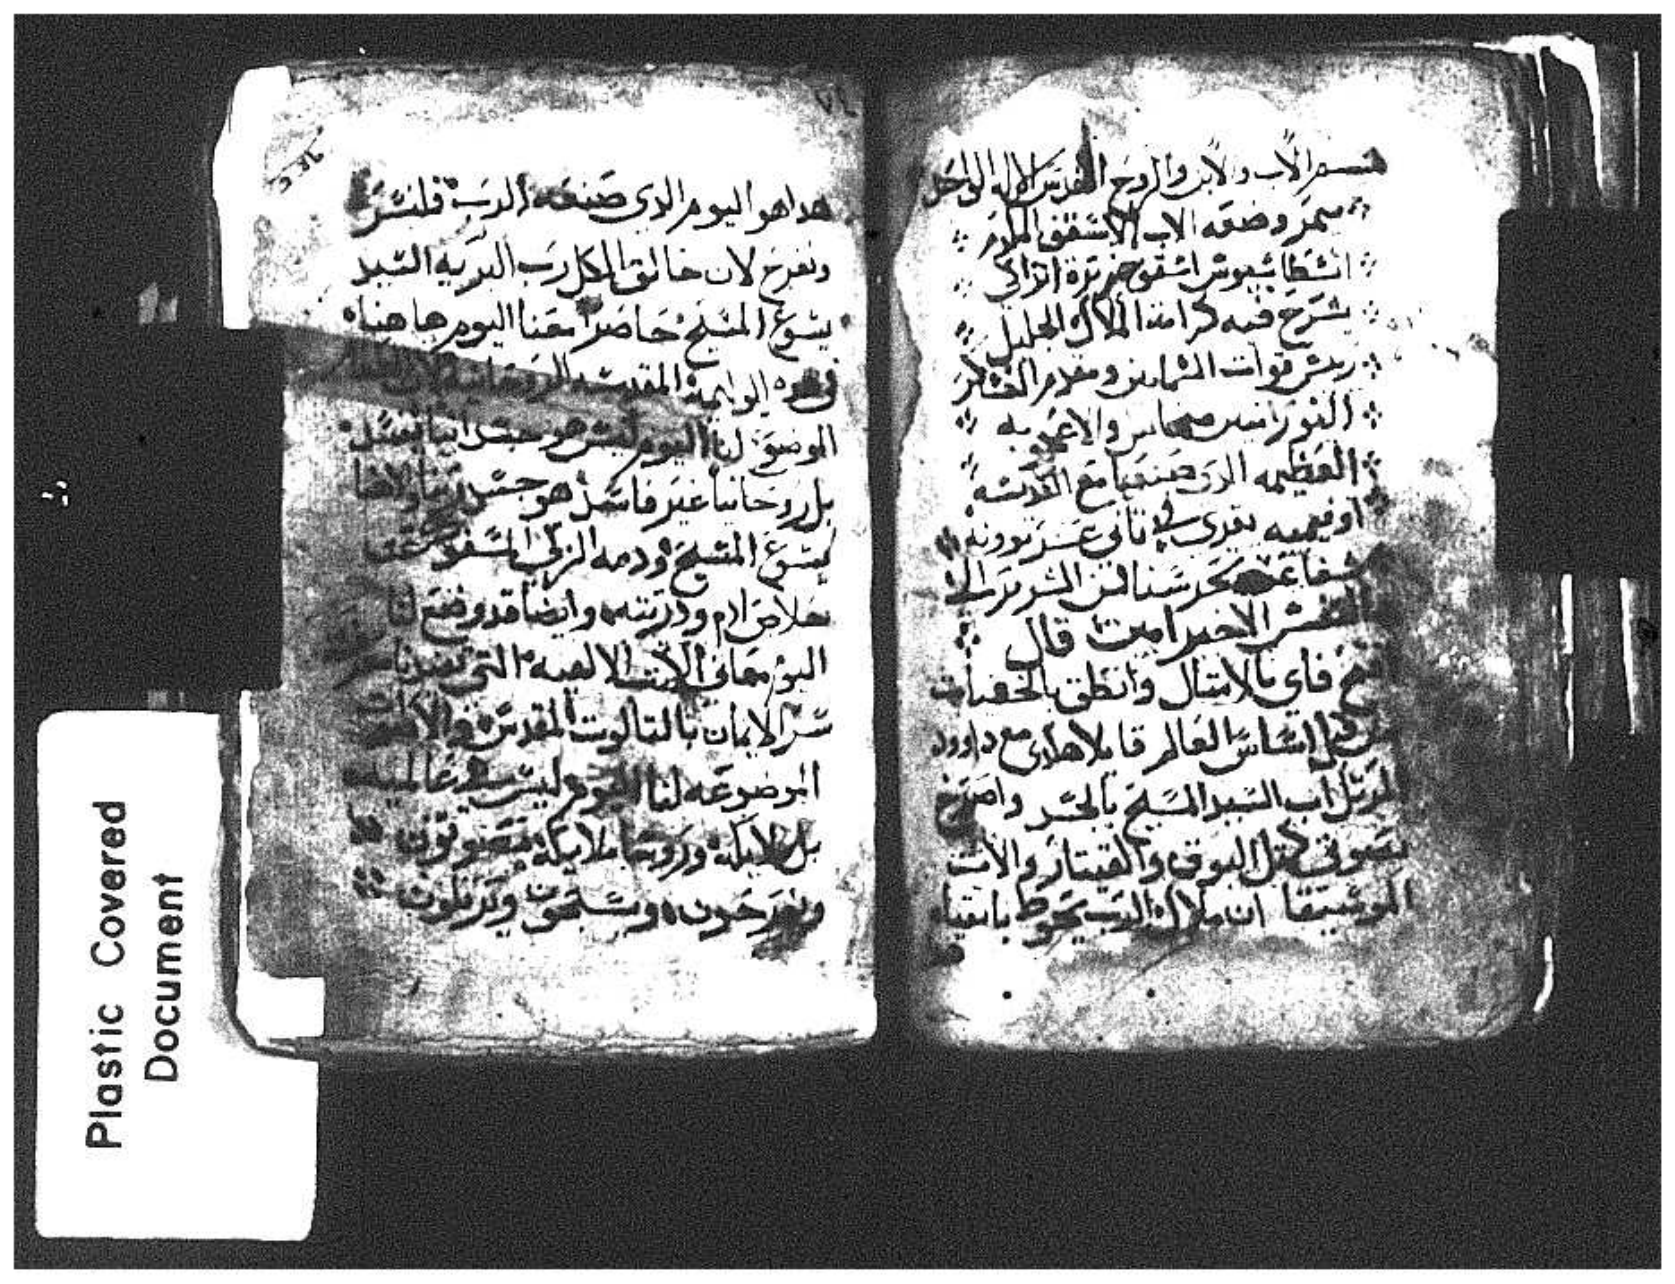 بسم الاب والابن والروح القدس الاله الواحد
ميمر وضعه الاب الاسقف المكرم
انسطاسيوس اسقف جزيرة اتراكي
يشرح فيه كرامة الملاك الجليل
ريس قوات السماين ومقدم العساكر
النورانيين ميخاييل والاعجوبه
العظيمه الدى صنعها مع القديسه
اوفيميه تقرى في تاني عشر بوونه
شفاعته تحرسنا من الشرير الى
النفس الاخير امين قال
افتح فاي بالامتال وانطق بالخفيات
من قبل اساس العالم قايلا هكدى مع داوود
المرتل اب السيد المسيح بالجسد واصرخ
بصوتي متل البوق والقيتار والات
الموسيقا ان ملاك الرب يحوط باتقياه
هداهو اليوم الدى صنعه الرب فلنسر
ونفرح لان خالق الكل رب البريه السيد
يسوع المسيح حاضرا معنا اليوم هاهنا
في هده الوليمة المقدسه الروحانية لان
الموضوع لنا اليوم ليس هو جسدانيا يفسد
بل روحانيا غير فاسد هو جسد ربنا والاهنا
يسوع المسيح ودمه الزكي المسفوك عن
خلاص ادم ودريته وايضا قد وضع لنا
اليوم معاني الالات الالهيه التي
سر الايمان بالتالوت المقدس
الموضوعه لنا اليوم ليس عالميه
بل ملايكة وروسا ملايكة
ويفرحون ويسبحون ويرتلون
Plastic Covered
Document